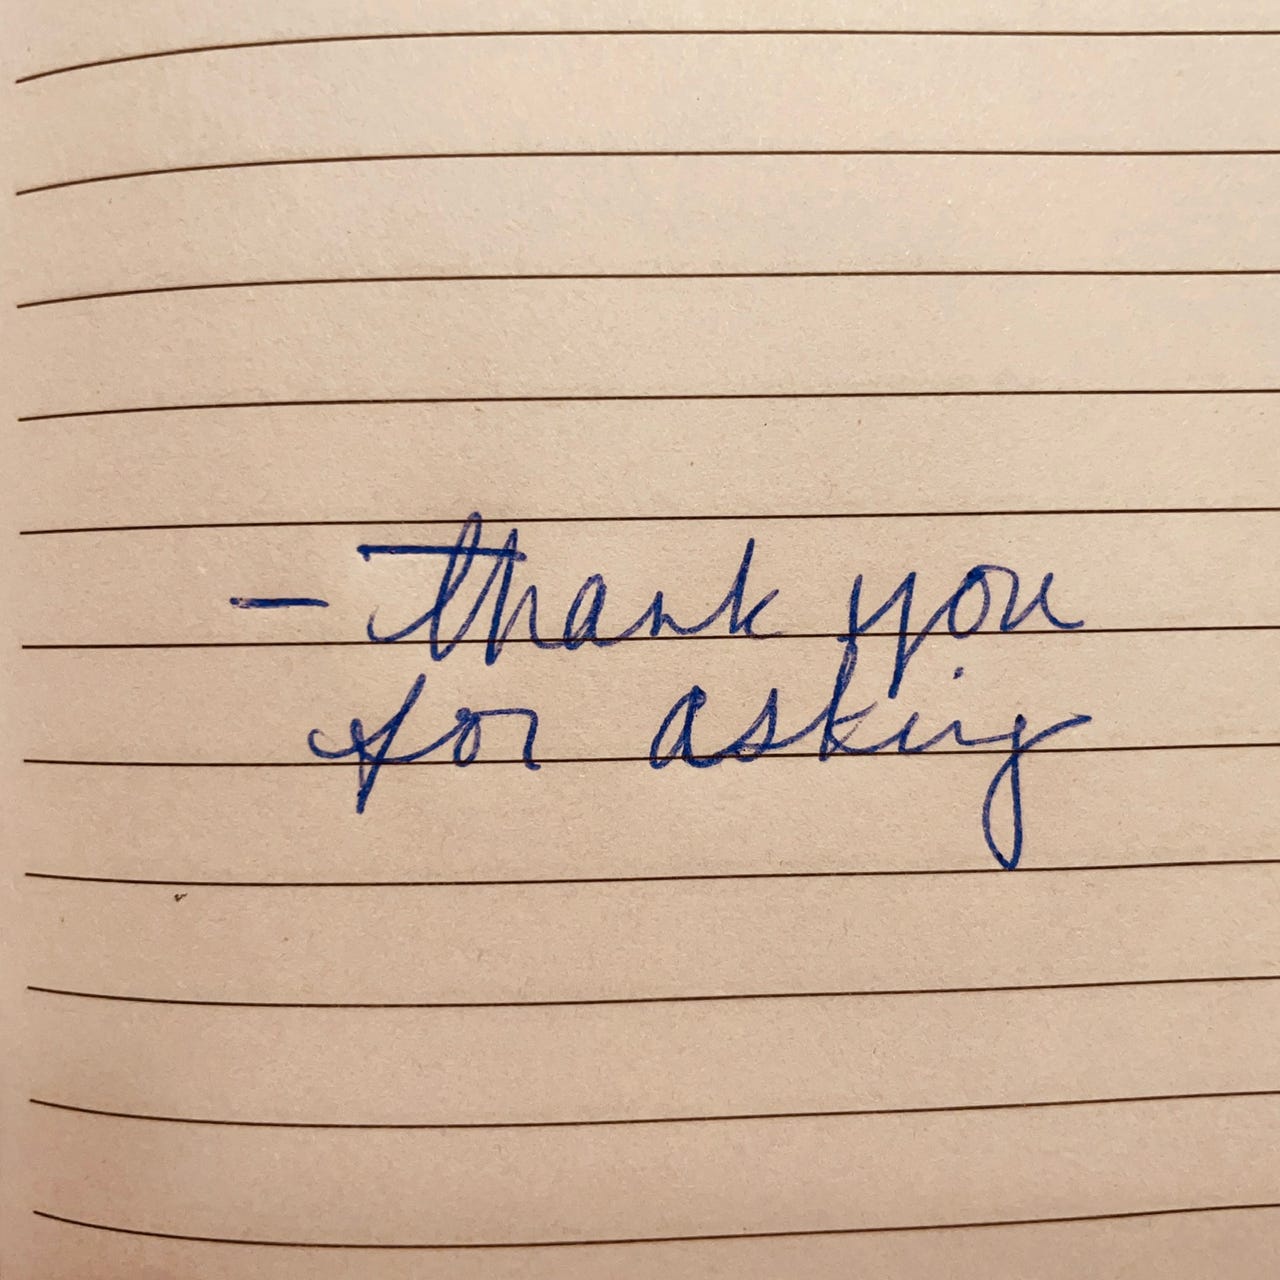 - thank you
for asking